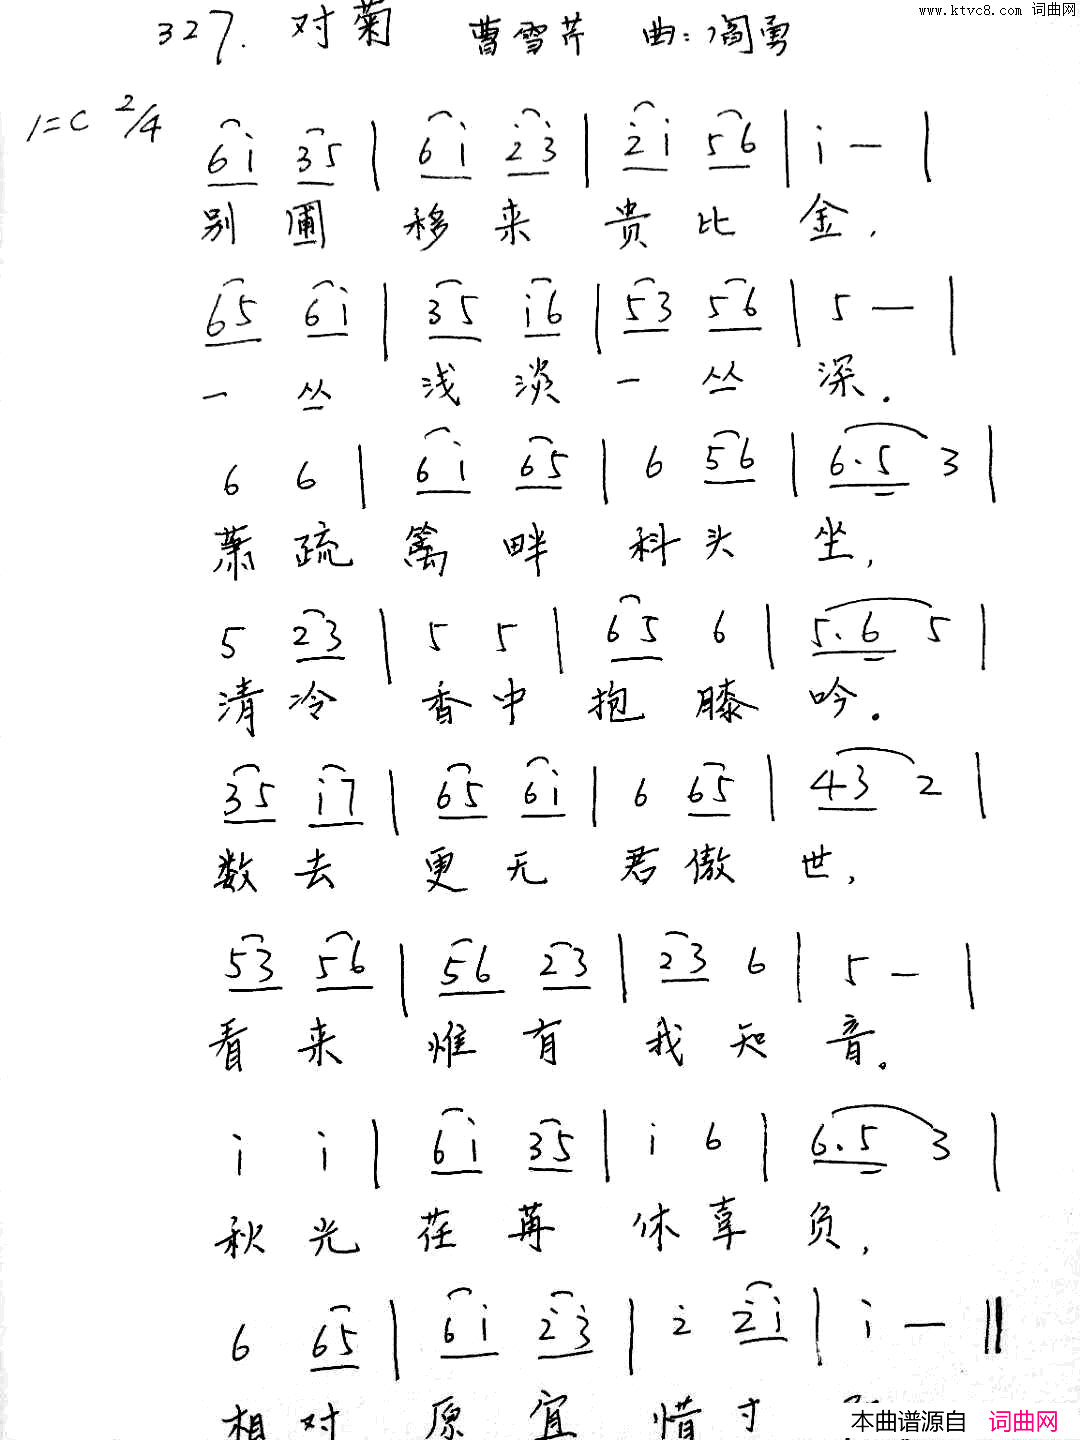 www.ktvc8.com 词曲网
327. 对菊 曹雪芹 曲:阎勇
1=C 2/4
6i 35 | 6i i̇3̇ | 2̇i 56 | i — |
别圃 移来 贵比 金,
65 6i | 35 i6 | 53 56 | 5 — |
一丛 浅淡 一丛 深.
6 6 | 6i 65 | 6 56 | 6.5 3 |
萧疏 篱畔 科头 坐,
5 23 | 5 5 | 65 6 | 5.6 5 |
清冷 香中 抱膝 吟.
35 i7 | 65 6i | 6 65 | 43 2 |
数去 更无 君傲 世,
53 56 | 56 23 | 23 6 | 5 — |
看来 惟有 我知 音。
i i | 6i 35 | i 6 | 6.5 3 |
秋光 荏苒 休辜 负,
6 65 | 6i 2̇3̇ | 2̇ 2̇i | i — ‖
相对 原宜 惜寸
本曲谱源自 词曲网